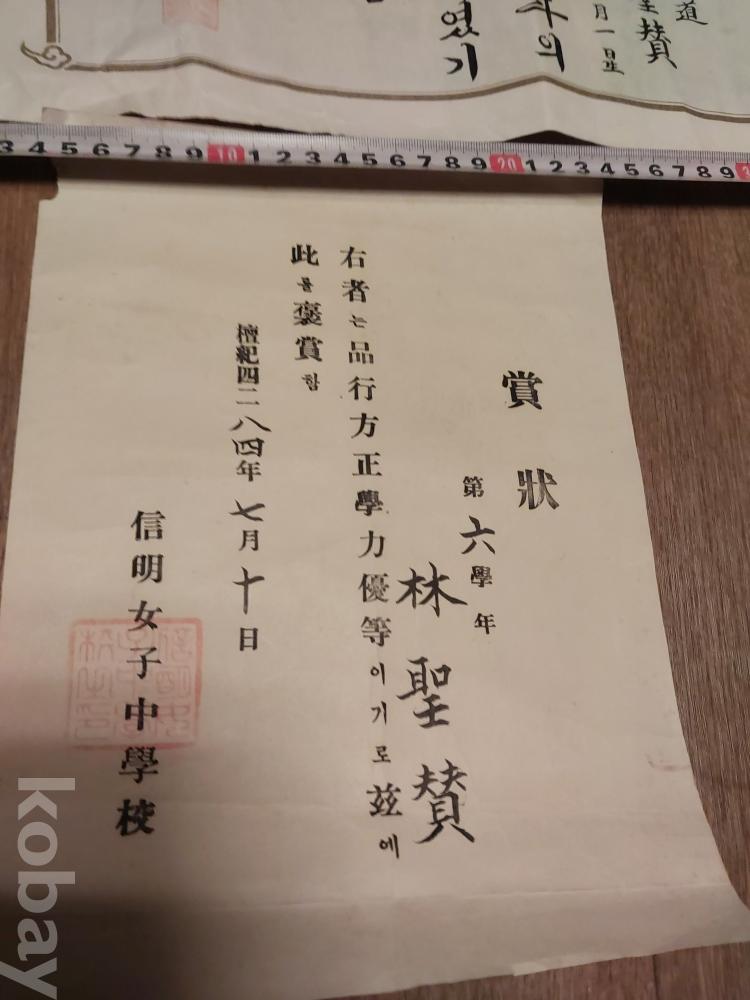 道
聖賛
月一日生
의
였기
3 4 5 6 7 8 9 10 1 2 3 4 5 6 7 8 9 20 1 2 3 4 5 6 7 8 9
賞狀
第六學年
林聖賛
右者는品行方正學力優等이기로玆에
此를褒賞함
檀紀四二八四年七月十日
信明女子中學校
kobay